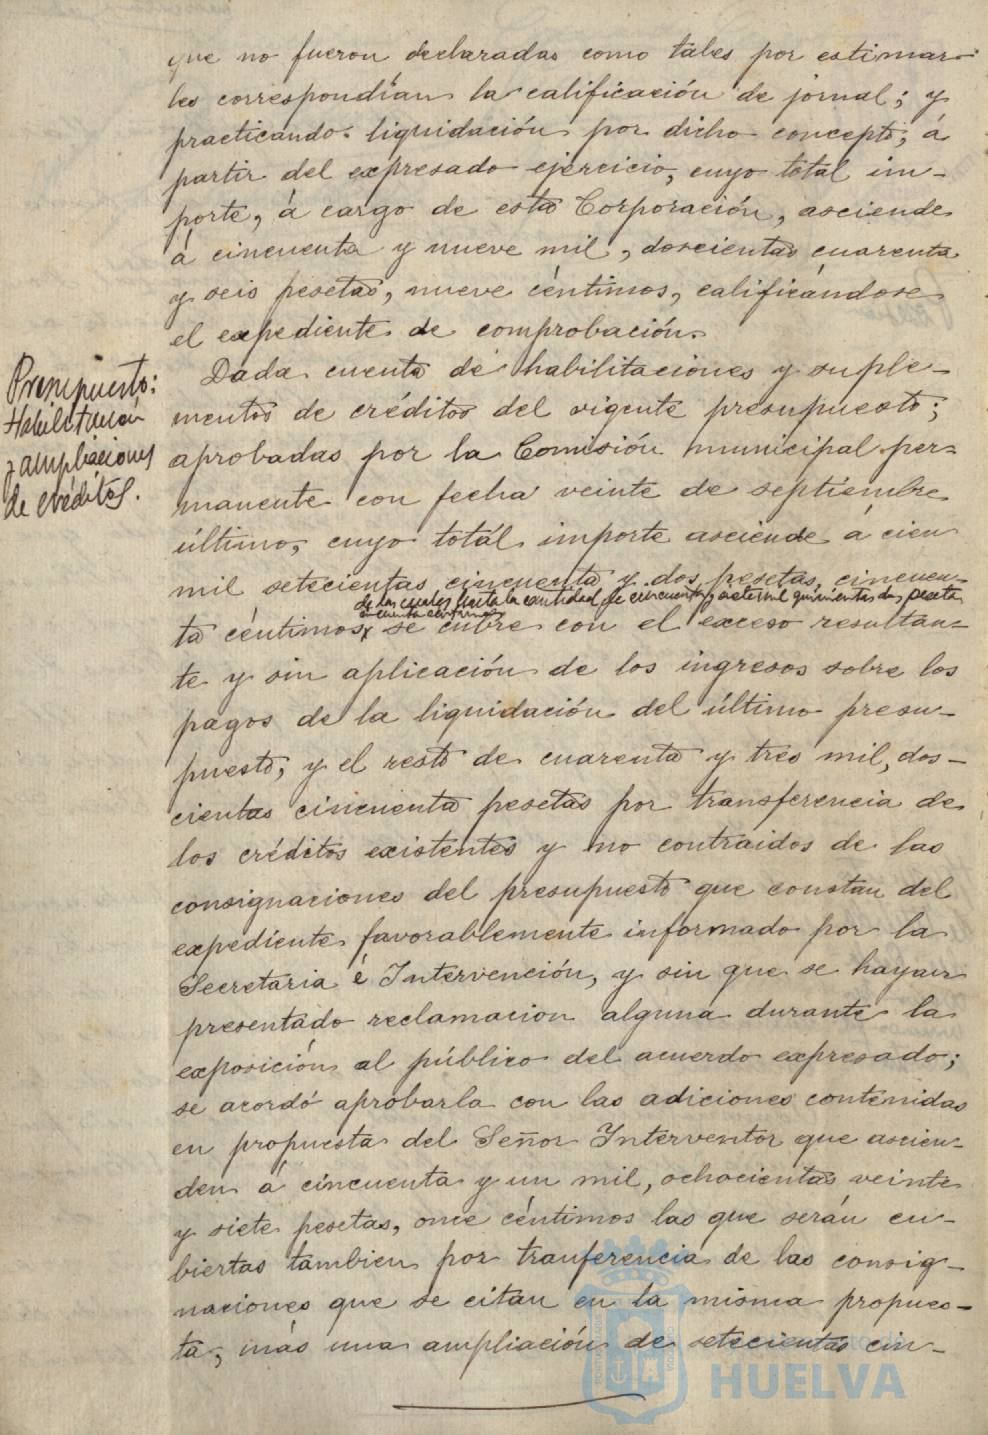 que no fueron declaradas como tales por estimar-
les correspondían la calificación de jornal; y
practicando liquidación por dicho concepto, á
partir del expresado ejercicio, cuyo total im-
porte, á cargo de esta Corporación, asciende
á cincuenta y nueve mil, doscientas cuarenta
y seis pesetas, nueve céntimos, calificándose
el expediente de comprobación.
Presupuesto:
Habilitación
y ampliaciones
de créditos.
Dada cuenta de habilitaciones y suple-
mentos de créditos del vigente presupuesto;
aprobadas por la Comisión municipal per-
manente con fecha veinte de septiembre
último, cuyo total importe asciende á cien
mil setecientas cincuenta y dos pesetas, cincuen-
de las cuales hasta la cantidad de cincuenta y siete mil quinientas dos pesetas
cincuenta céntimos
ta céntimos, se cubre con el exceso resultan-
te y sin aplicación de los ingresos sobre los
pagos de la liquidación del último presu-
puesto, y el resto de cuarenta y tres mil, dos-
cientas cincuenta pesetas por transferencia de
los créditos existentes y no contraidos de las
consignaciones del presupuesto que constan del
expediente favorablemente informado por la
Secretaria é Intervención, y sin que se hayan
presentado reclamacion alguna durante la
exposición al público del acuerdo expresado;
se acordó aprobarla con las adiciones contenidas
en propuesta del Señor Interventor que ascien-
den á cincuenta y un mil, ochocientas veinte
y siete pesetas, once céntimos las que serán cu-
biertas tambien por tranferencia de las consig-
naciones que se citan en la misma propues-
ta, más una ampliación de setecientas cin-
HUELVA